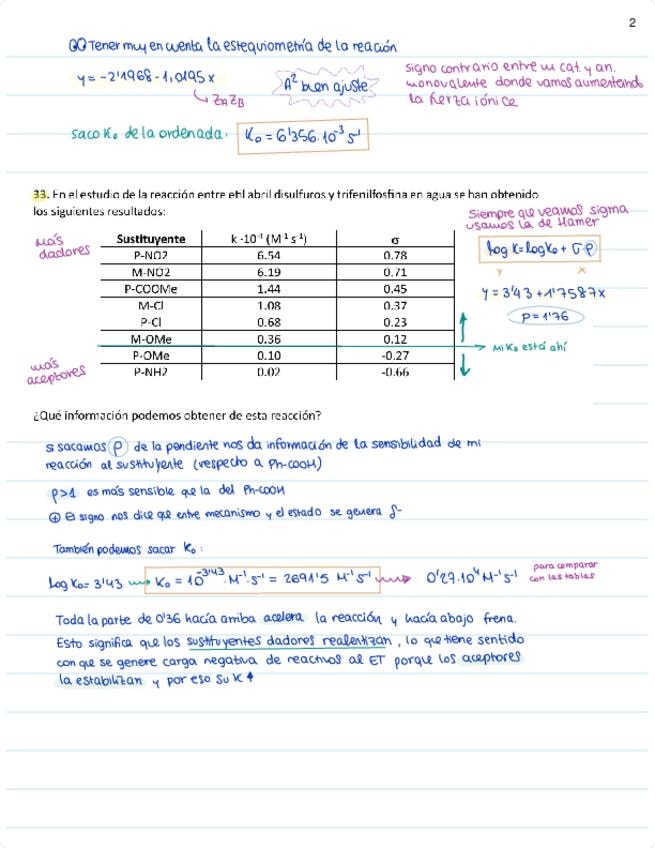 2
Tener muy en cuenta la estequiometría de la reacción
y = -2'1968 - 1,0195 x
ZA ZB
A² buen ajuste
signo contrario entre un cat y an.
monovalente donde vamos aumentando
la fuerza iónica
saco K₀ de la ordenada. K₀ = 6'356·10⁻³ s⁻¹
33. En el estudio de la reacción entre etil abril disulfuros y trifenilfosfina en agua se han obtenido
los siguientes resultados:
Siempre que veamos sigma
usamos la de Hamer
más
dadores
Sustituyente k ·10⁻¹ (M⁻¹ s⁻¹) σ
P-NO2 6.54 0.78
M-NO2 6.19 0.71
P-COOMe 1.44 0.45
M-Cl 1.08 0.37
P-Cl 0.68 0.23
M-OMe 0.36 0.12
P-OMe 0.10 -0.27
P-NH2 0.02 -0.66
más
aceptores
log K = log K₀ + σρ
y x
y = 3'43 + 1'7587x
ρ = 1'76
mi K₀ está ahí
¿Qué información podemos obtener de esta reacción?
si sacamos ρ de la pendiente nos da información de la sensibilidad de mi
reacción al sustituyente (respecto a Ph-COOH)
ρ>1 es más sensible que la del Ph-COOH
⊕ El signo nos dice que entre mecanismo y el estado se genera δ-
También podemos sacar K₀:
Log K₀ = 3'43 K₀ = 10⁻³'⁴³ M⁻¹·s⁻¹ = 2691'5 M⁻¹s⁻¹ 0'27·10⁴ M⁻¹s⁻¹
para comparar
con las tablas
Toda la parte de 0'36 hacía arriba acelera la reacción y hacía abajo frena.
Esto significa que los sustituyentes dadores realentizan, lo que tiene sentido
con que se genere carga negativa de reactivos al ET porque los aceptores
la estabilizan y por eso su K ↑